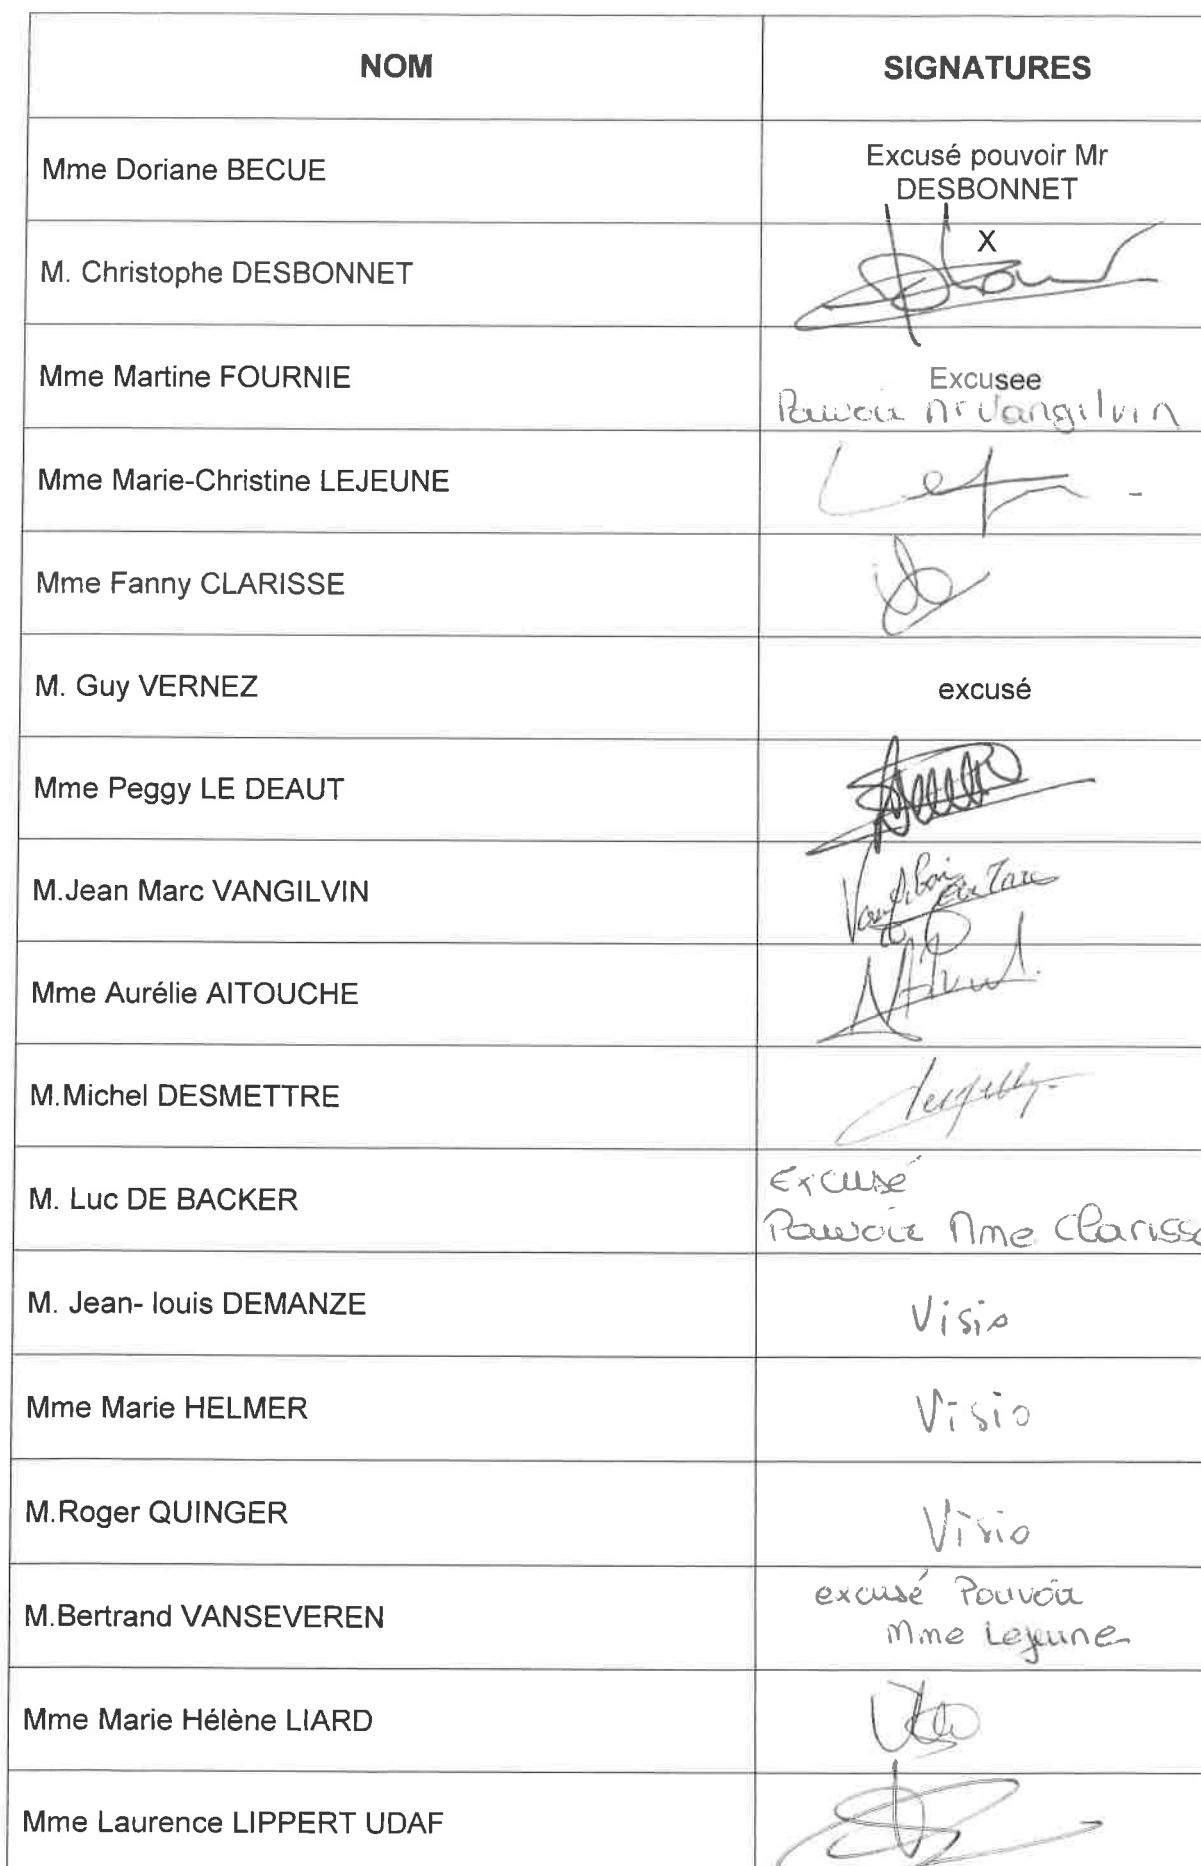 NOM SIGNATURES
Mme Doriane BECUE Excusé pouvoir Mr
DESBONNET
M. Christophe DESBONNET X
Mme Martine FOURNIE Excusee
Pouvoir Mr Vangilvin
Mme Marie-Christine LEJEUNE
Mme Fanny CLARISSE
M. Guy VERNEZ excusé
Mme Peggy LE DEAUT
M.Jean Marc VANGILVIN
Mme Aurélie AITOUCHE
M.Michel DESMETTRE
M. Luc DE BACKER Excusé
Pouvoir Mme Clarisse
M. Jean- louis DEMANZE Visio
Mme Marie HELMER Visio
M.Roger QUINGER Visio
M.Bertrand VANSEVEREN excusé Pouvoir
Mme Lejeune
Mme Marie Hélène LIARD
Mme Laurence LIPPERT UDAF